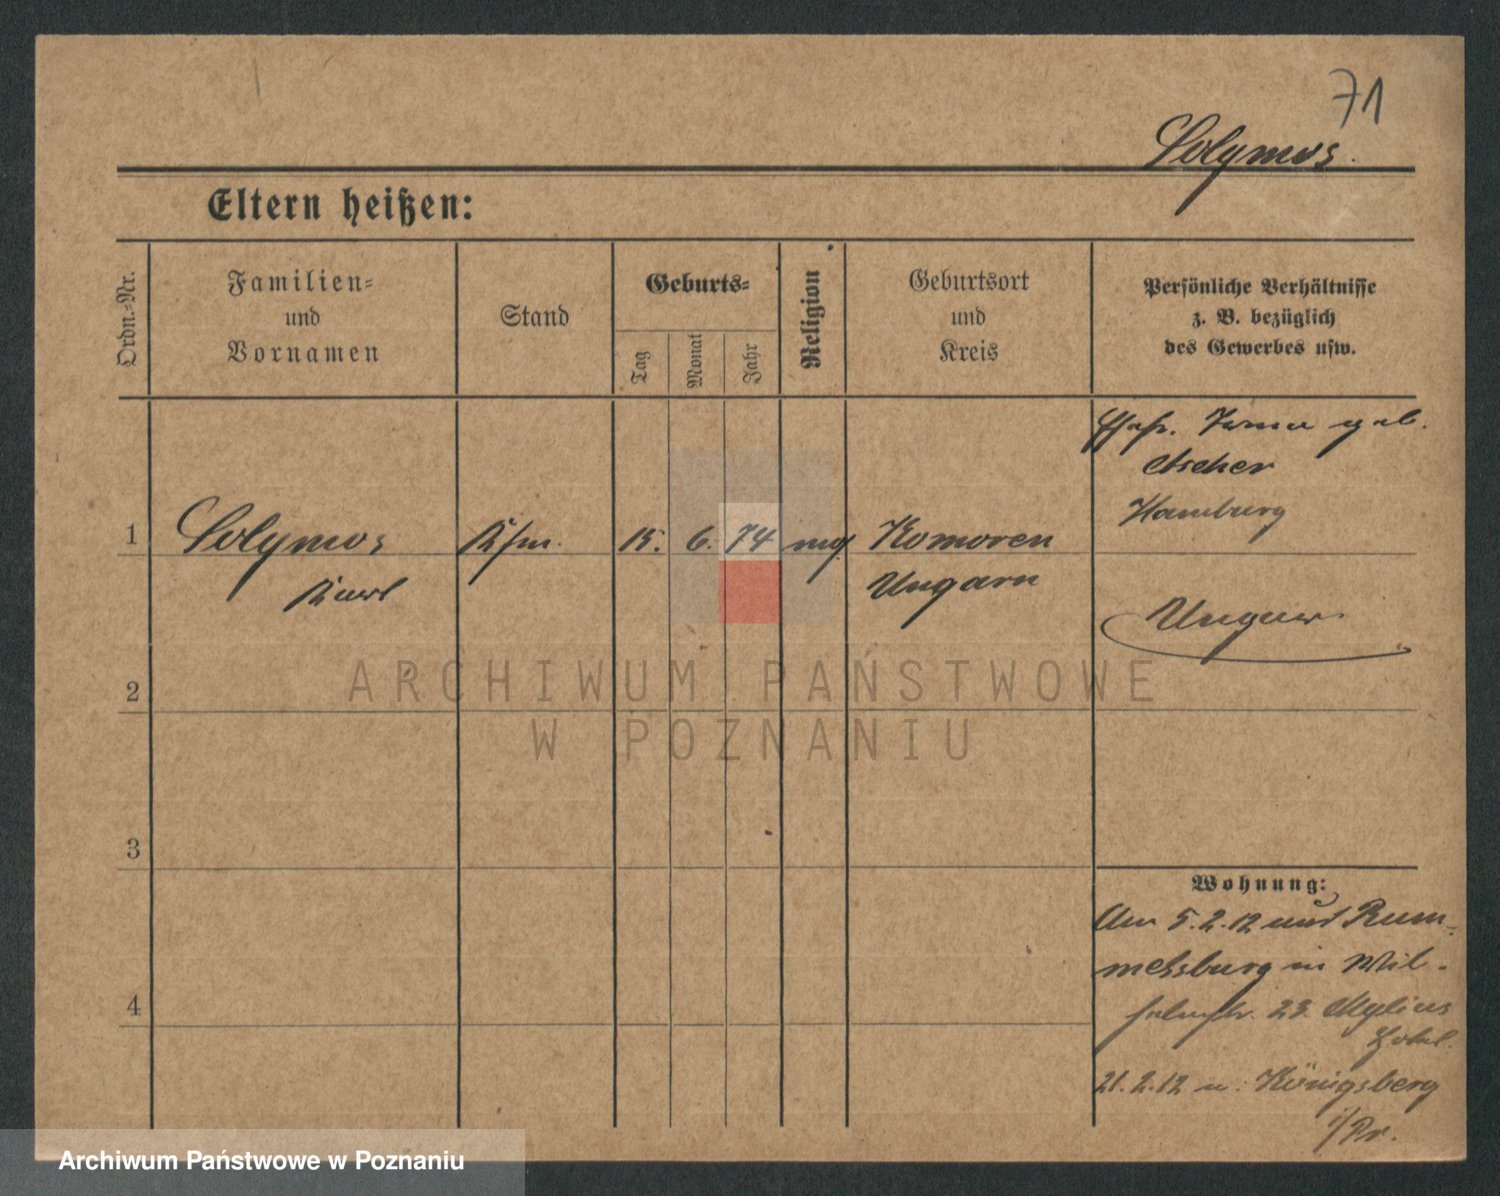 71
Solymos.
Eltern heißen:
Ordn.=Nr.
Familien=
und
Vornamen
Stand
Geburts=
Tag
Monat
Jahr
Religion
Geburtsort
und
Kreis
Persönliche Verhältnisse
z. B. bezüglich
des Gewerbes usw.
Ehefr. Irma geb.
Ascher
Hamburg
1
Solymos
Kfm.
15.
6.
74
mos.
Komoren
Karl
Ungarn
Ungar
2
ARCHIWUM PAŃSTWOWE
W POZNANIU
3
4
Wohnung:
Am 5.2.12 aus Rum=
melsburg in Wil=
helmstr. 23. Mylius
Hotel.
21.2.12 n. Königsberg
i/Pr.
Archiwum Państwowe w Poznaniu